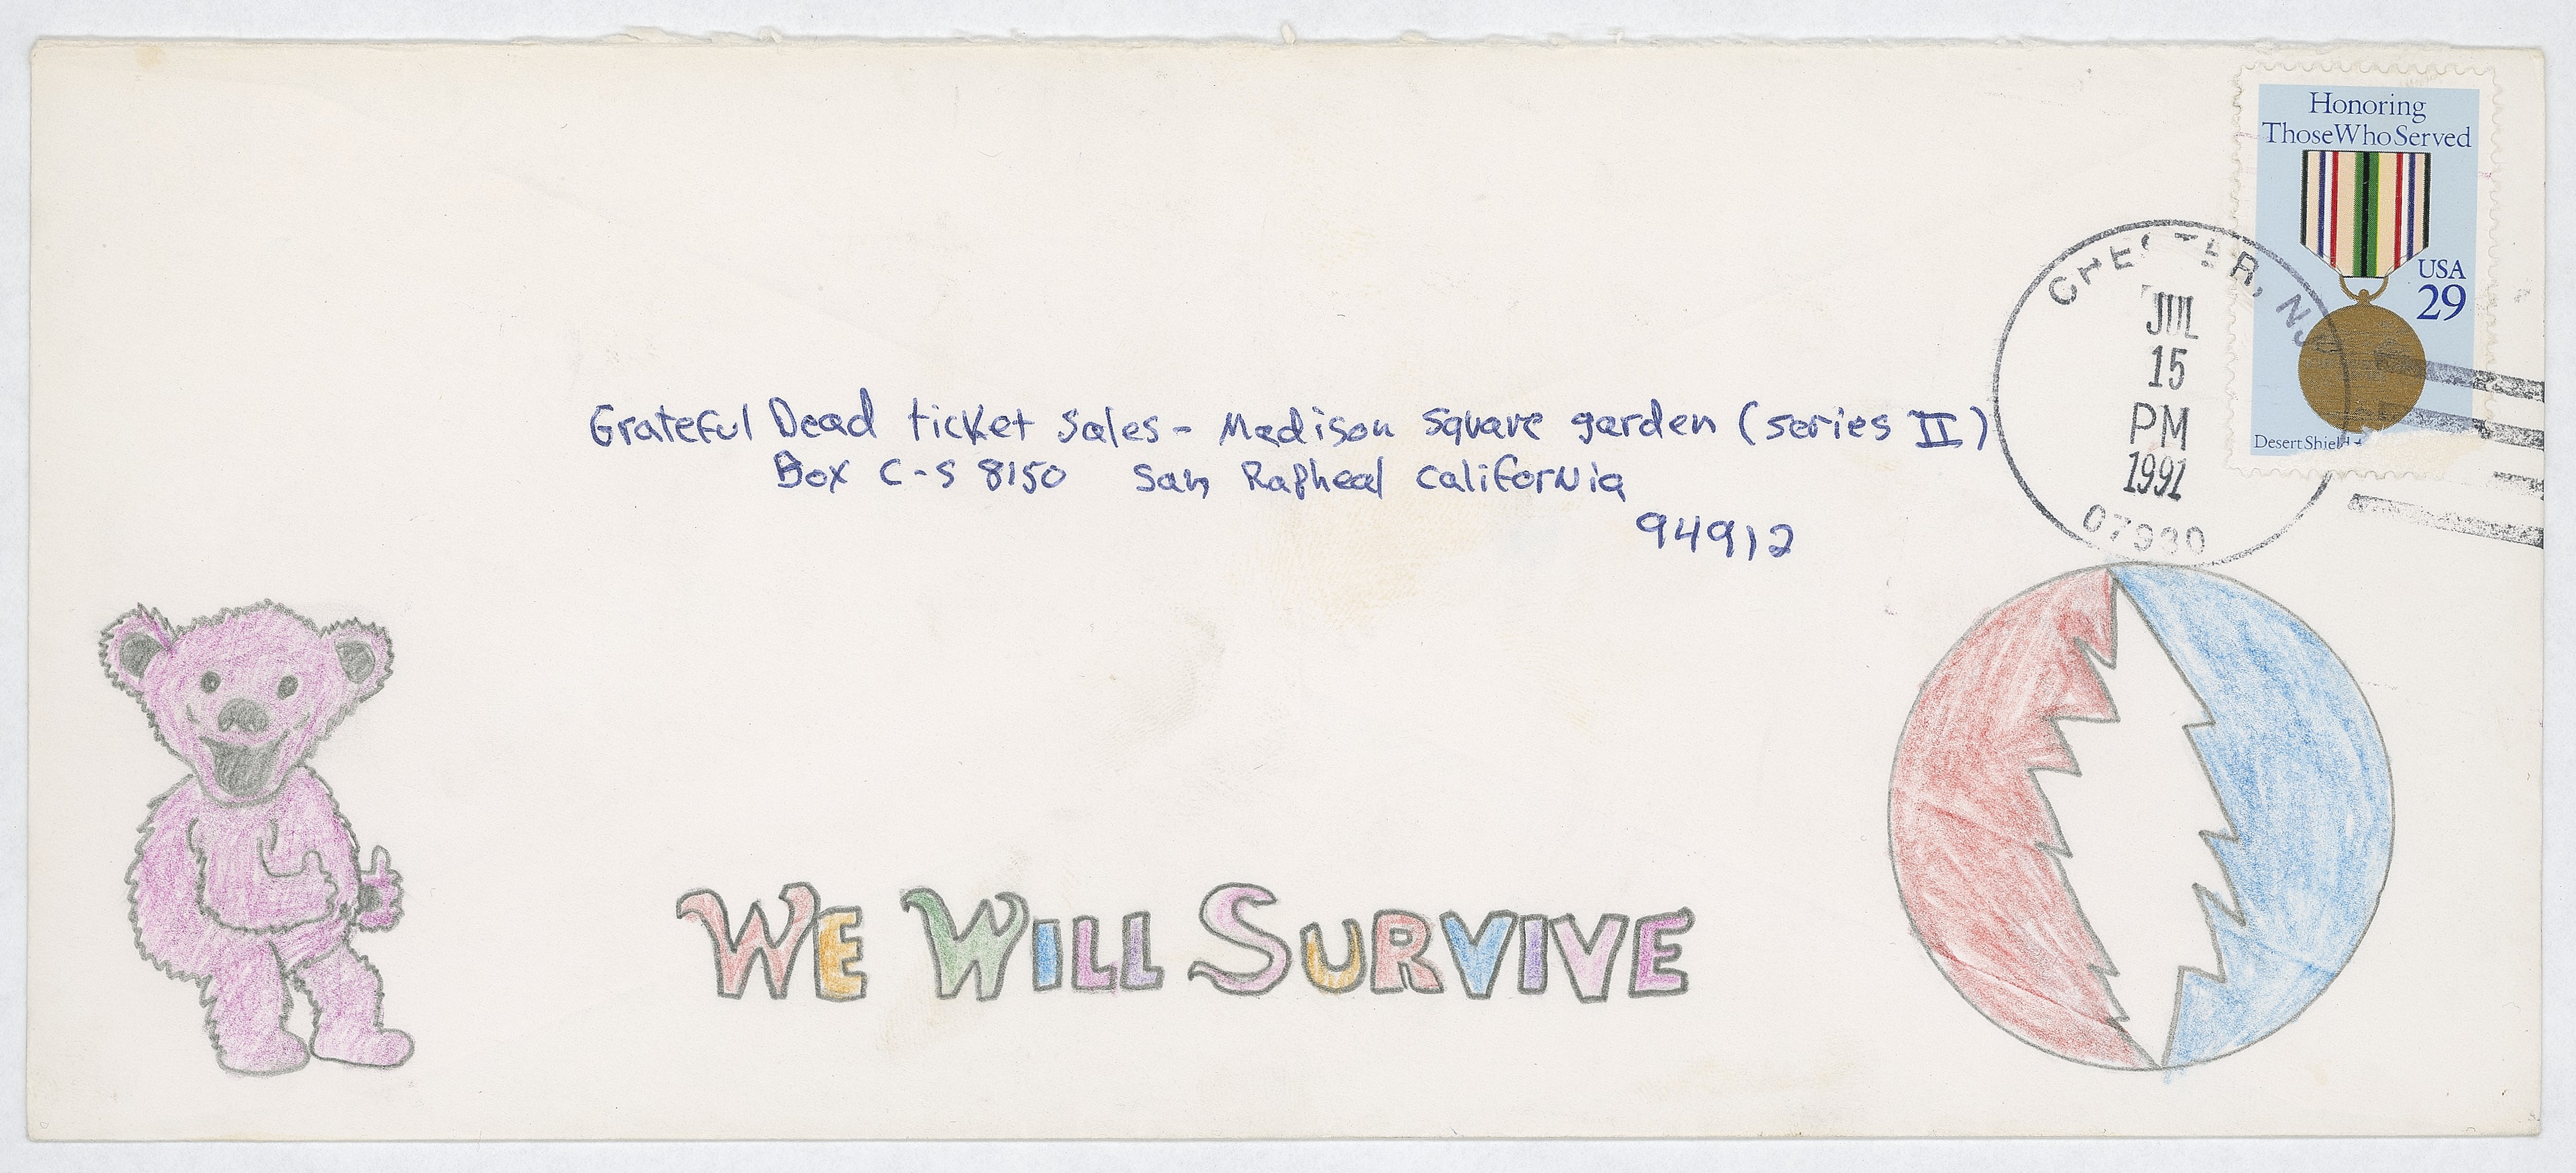 Honoring
Those Who Served
USA
29
Desert Shield
CHESTER, NJ
JUL
15
PM
1991
07930
Grateful Dead ticket sales - Madison square garden (series II)
Box C-S 8150 San Rapheal California
94912
WE WILL SURVIVE